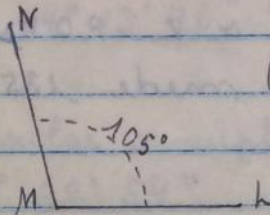 N
105°
M L